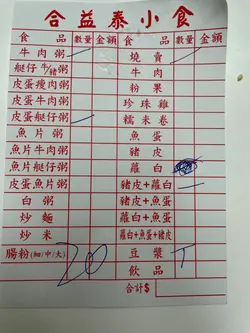 合益泰小食
食 品 數量 金額 食 品 數量 金額
牛肉粥 燒賣
艇仔牛/豬粥 牛肉
皮蛋瘦肉粥 粉果
皮蛋牛肉粥 珍珠雞
皮蛋艇仔粥 糯米卷
魚片粥 魚蛋
魚片牛肉粥 豬皮
魚片艇仔粥 蘿白
皮蛋魚片粥 豬皮+蘿白
白粥 豬皮+魚蛋
炒麵 蘿白+魚蛋
炒米 蘿白+魚蛋+豬皮
腸粉(細/中/大) 20 豆漿 T
飲品
合計$